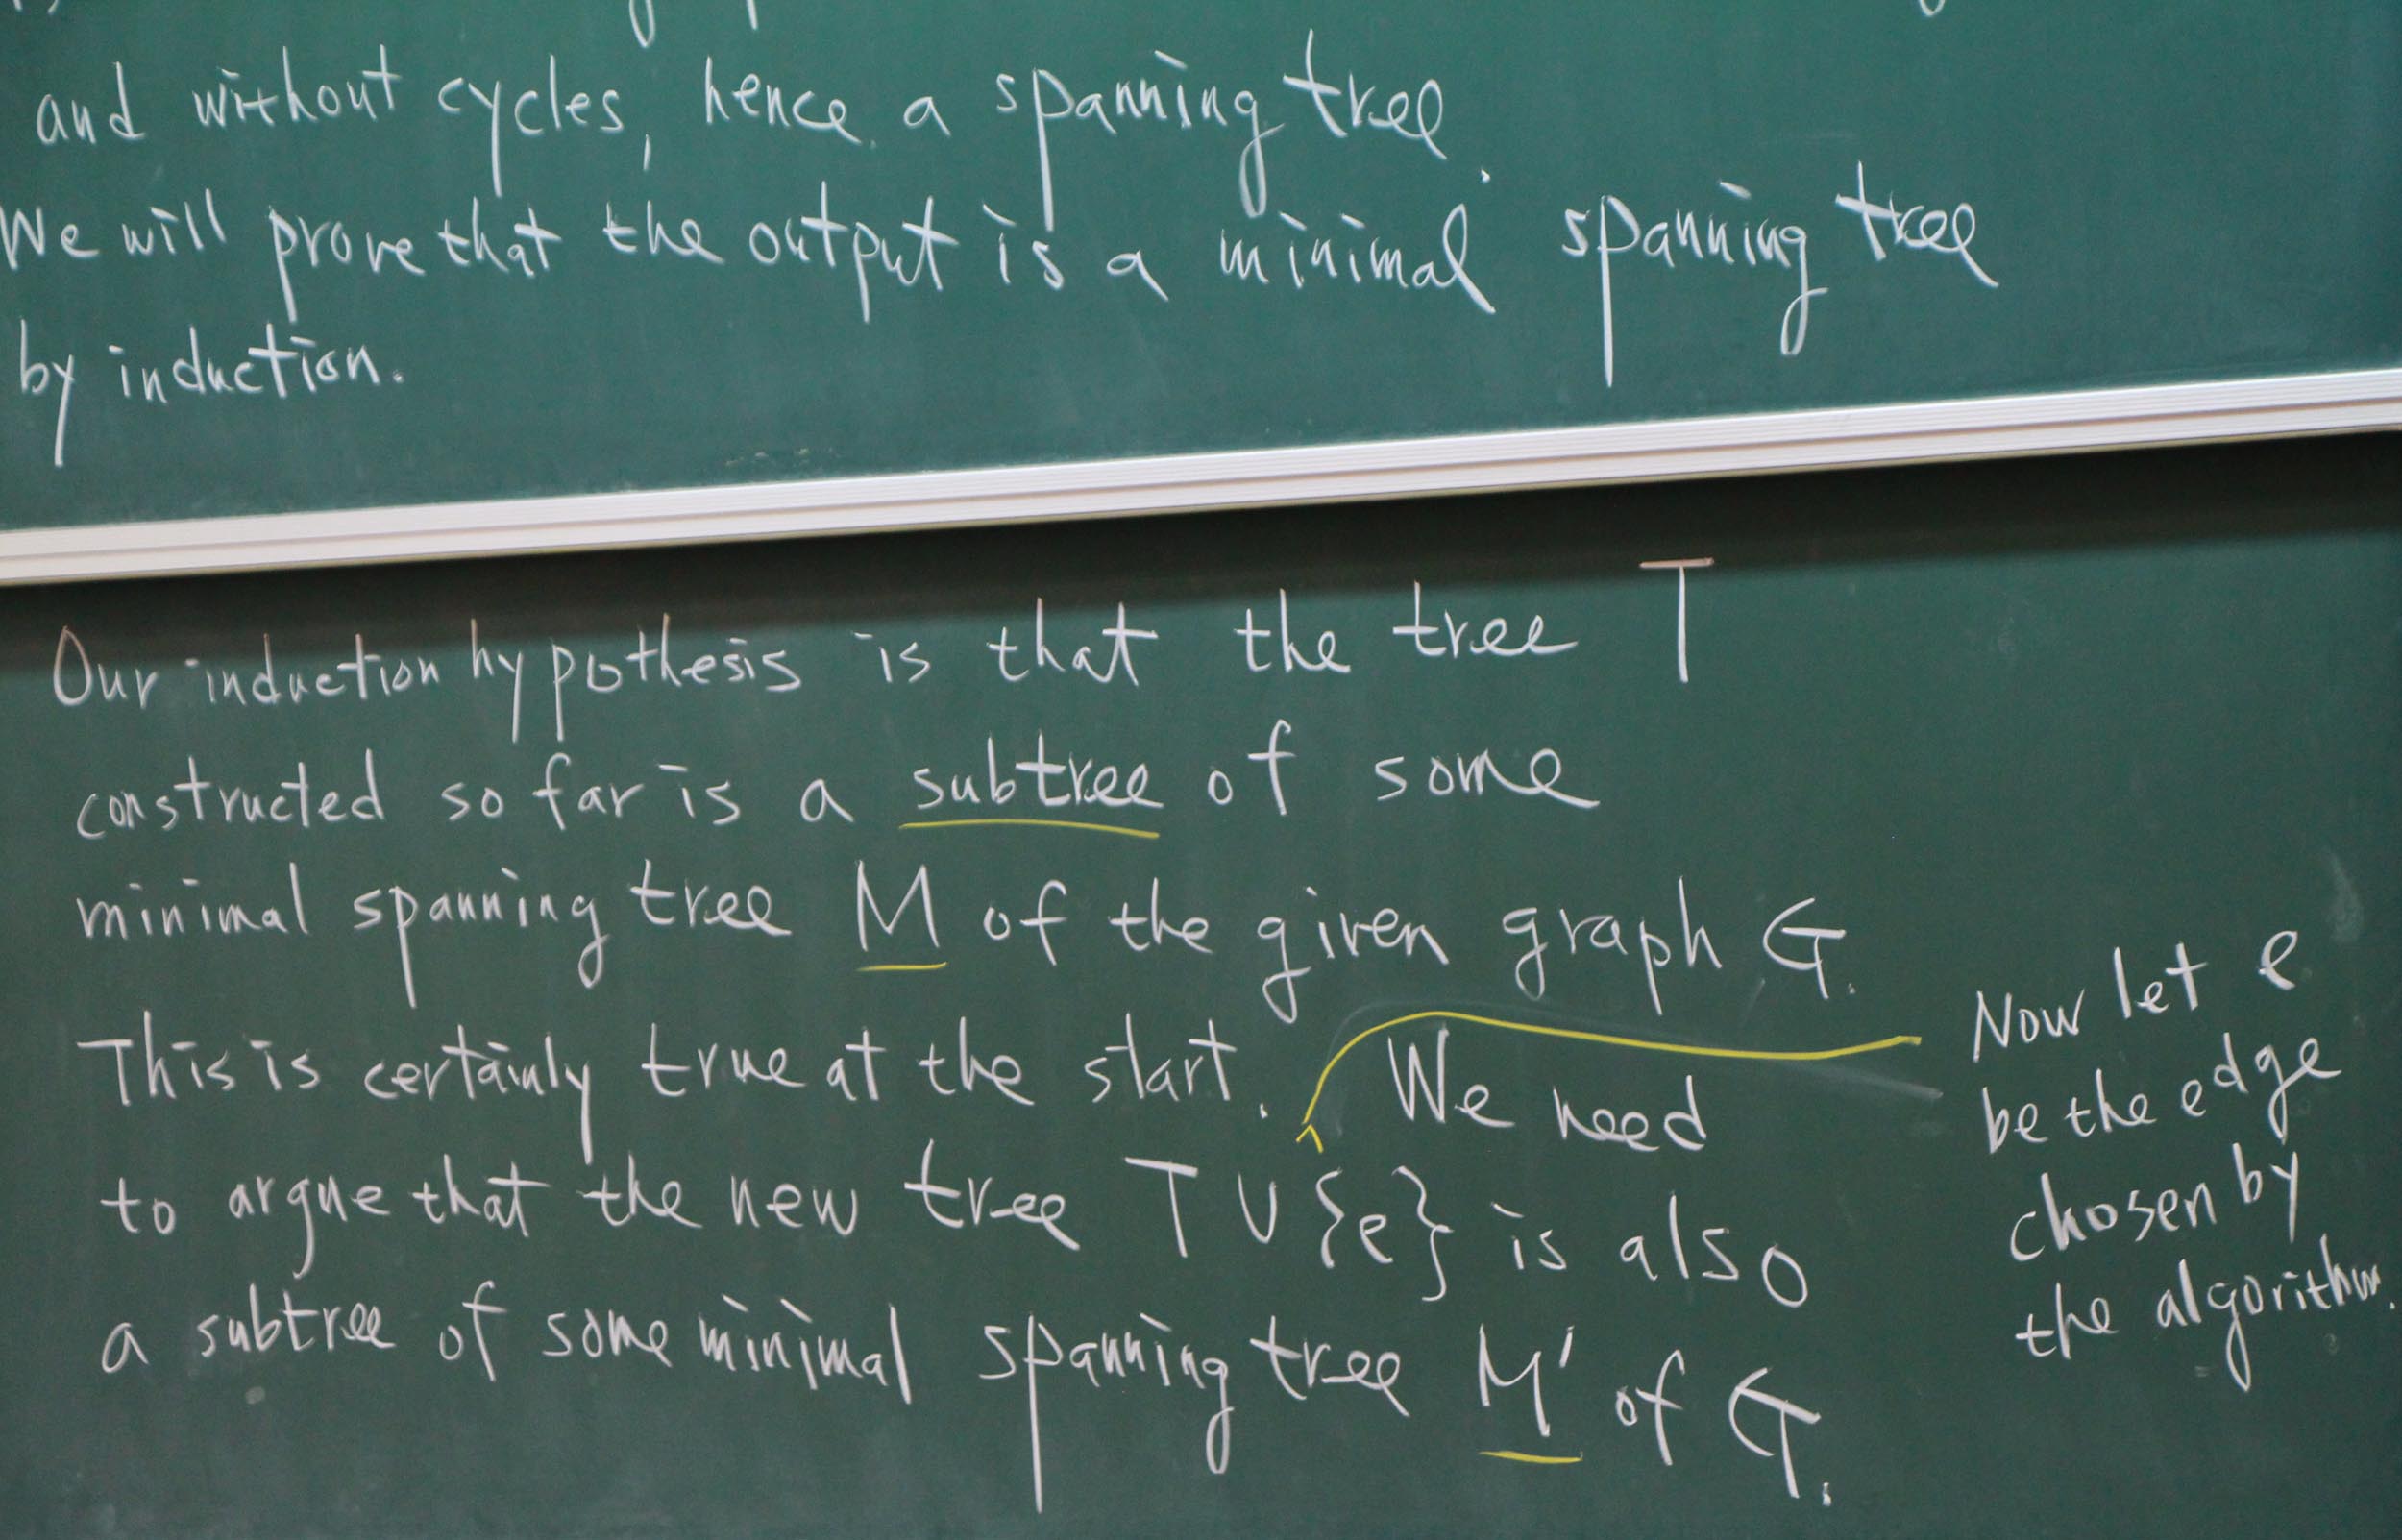 and without cycles, hence a spanning tree.
We will prove that the output is a minimal spanning tree
by induction.
Our induction hypothesis is that the tree T
constructed so far is a subtree of some
minimal spanning tree M of the given graph G.
This is certainly true at the start. We need
to argue that the new tree T ∪ {e} is also
a subtree of some minimal spanning tree M' of G.
Now let e
be the edge
chosen by
the algorithm.